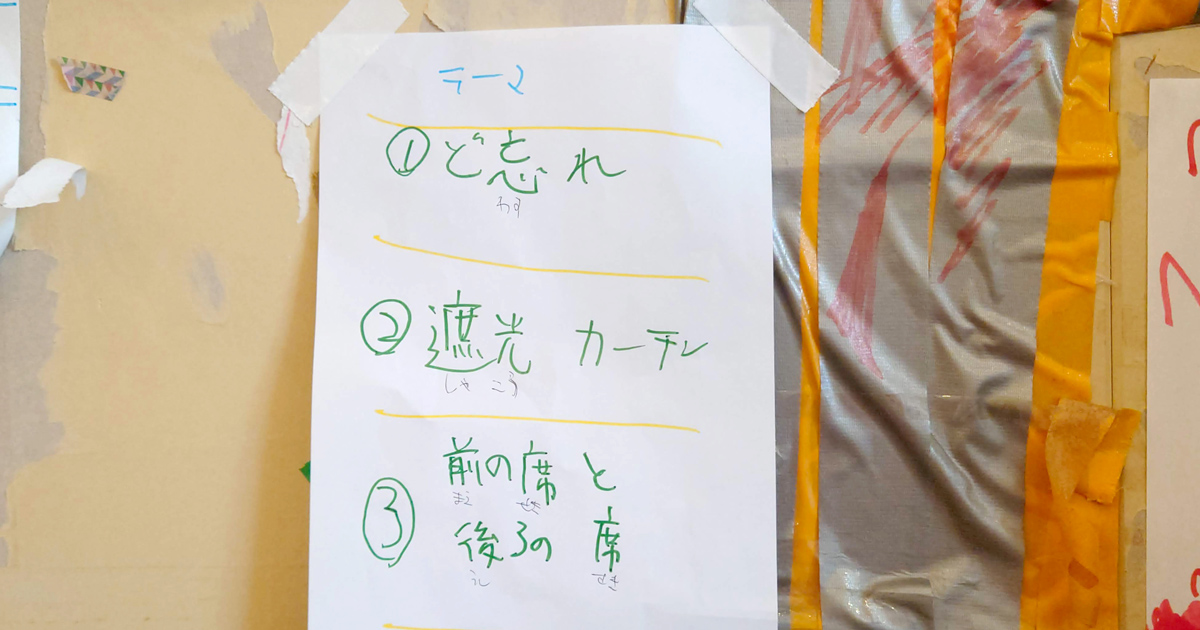 テーマ
① ど忘れ
わす
② 遮光 カーテン
しゃ こう
③ 前の席と
まえ せき
後ろの 席
うし せき